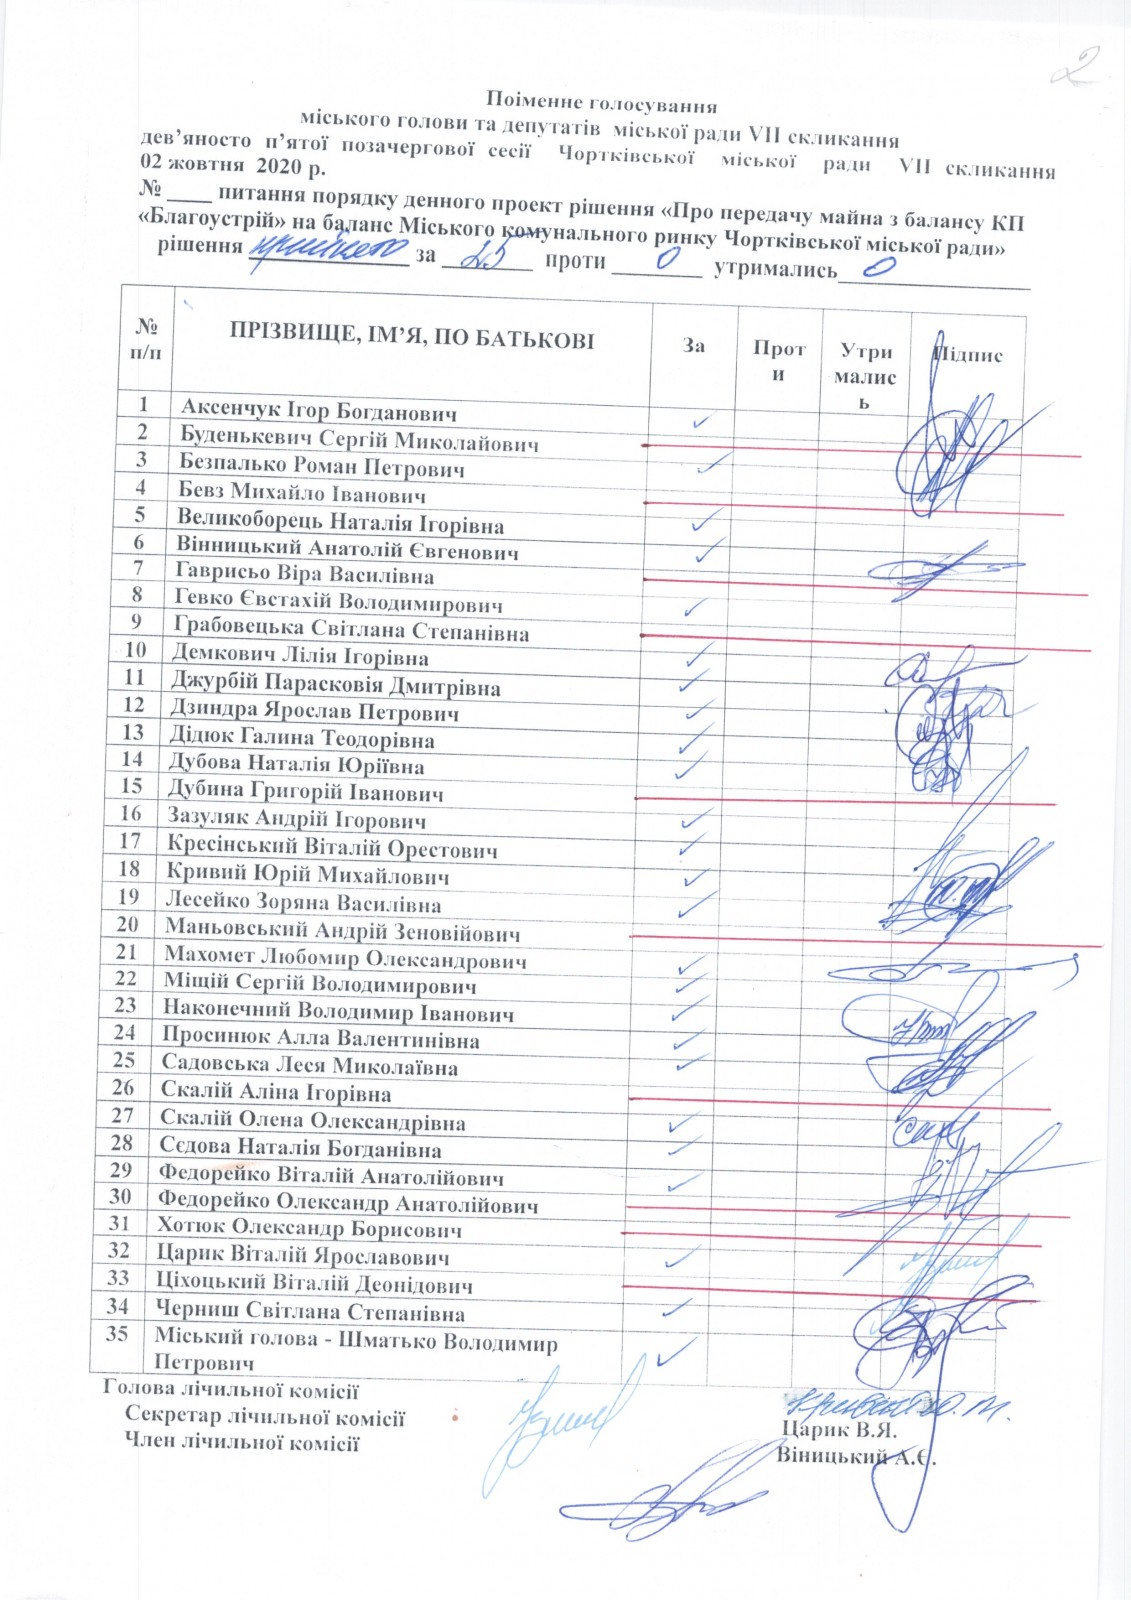 2
Поіменне голосування
міського голови та депутатів міської ради VII скликання
дев’яносто п’ятої позачергової сесії Чортківської міської ради VII скликання
02 жовтня 2020 р.
№ ____ питання порядку денного проект рішення «Про передачу майна з балансу КП
«Благоустрій» на баланс Міського комунального ринку Чортківської міської ради»
рішення прийнято за 25 проти 0 утримались 0
№ п/п ПРІЗВИЩЕ, ІМ’Я, ПО БАТЬКОВІ За Проти Утрималис ь Підпис
1 Аксенчук Ігор Богданович ✓
2 Буденькевич Сергій Миколайович
3 Безпалько Роман Петрович ✓
4 Бевз Михайло Іванович
5 Великоборець Наталія Ігорівна ✓
6 Вінницький Анатолій Євгенович ✓
7 Гаврисьо Віра Василівна
8 Гевко Євстахій Володимирович ✓
9 Грабовецька Світлана Степанівна
10 Демкович Лілія Ігорівна ✓
11 Джурбій Парасковія Дмитрівна ✓
12 Дзиндра Ярослав Петрович ✓
13 Дідюк Галина Теодорівна ✓
14 Дубова Наталія Юріївна ✓
15 Дубина Григорій Іванович
16 Зазуляк Андрій Ігорович ✓
17 Кресінський Віталій Орестович ✓
18 Кривий Юрій Михайлович ✓
19 Лесейко Зоряна Василівна ✓
20 Маньовський Андрій Зеновійович
21 Махомет Любомир Олександрович ✓
22 Міщій Сергій Володимирович ✓
23 Наконечний Володимир Іванович ✓
24 Просинюк Алла Валентинівна ✓
25 Садовська Леся Миколаївна ✓
26 Скалій Аліна Ігорівна
27 Скалій Олена Олександрівна ✓
28 Сєдова Наталія Богданівна ✓
29 Федорейко Віталій Анатолійович ✓
30 Федорейко Олександр Анатолійович
31 Хотюк Олександр Борисович
32 Царик Віталій Ярославович ✓
33 Ціхоцький Віталій Деонідович
34 Черниш Світлана Степанівна ✓
35 Міський голова - Шматько Володимир ✓
Петрович
Голова лічильної комісії Кривий Ю. М.
Секретар лічильної комісії Царик В.Я.
Член лічильної комісії Віницький А.Є.